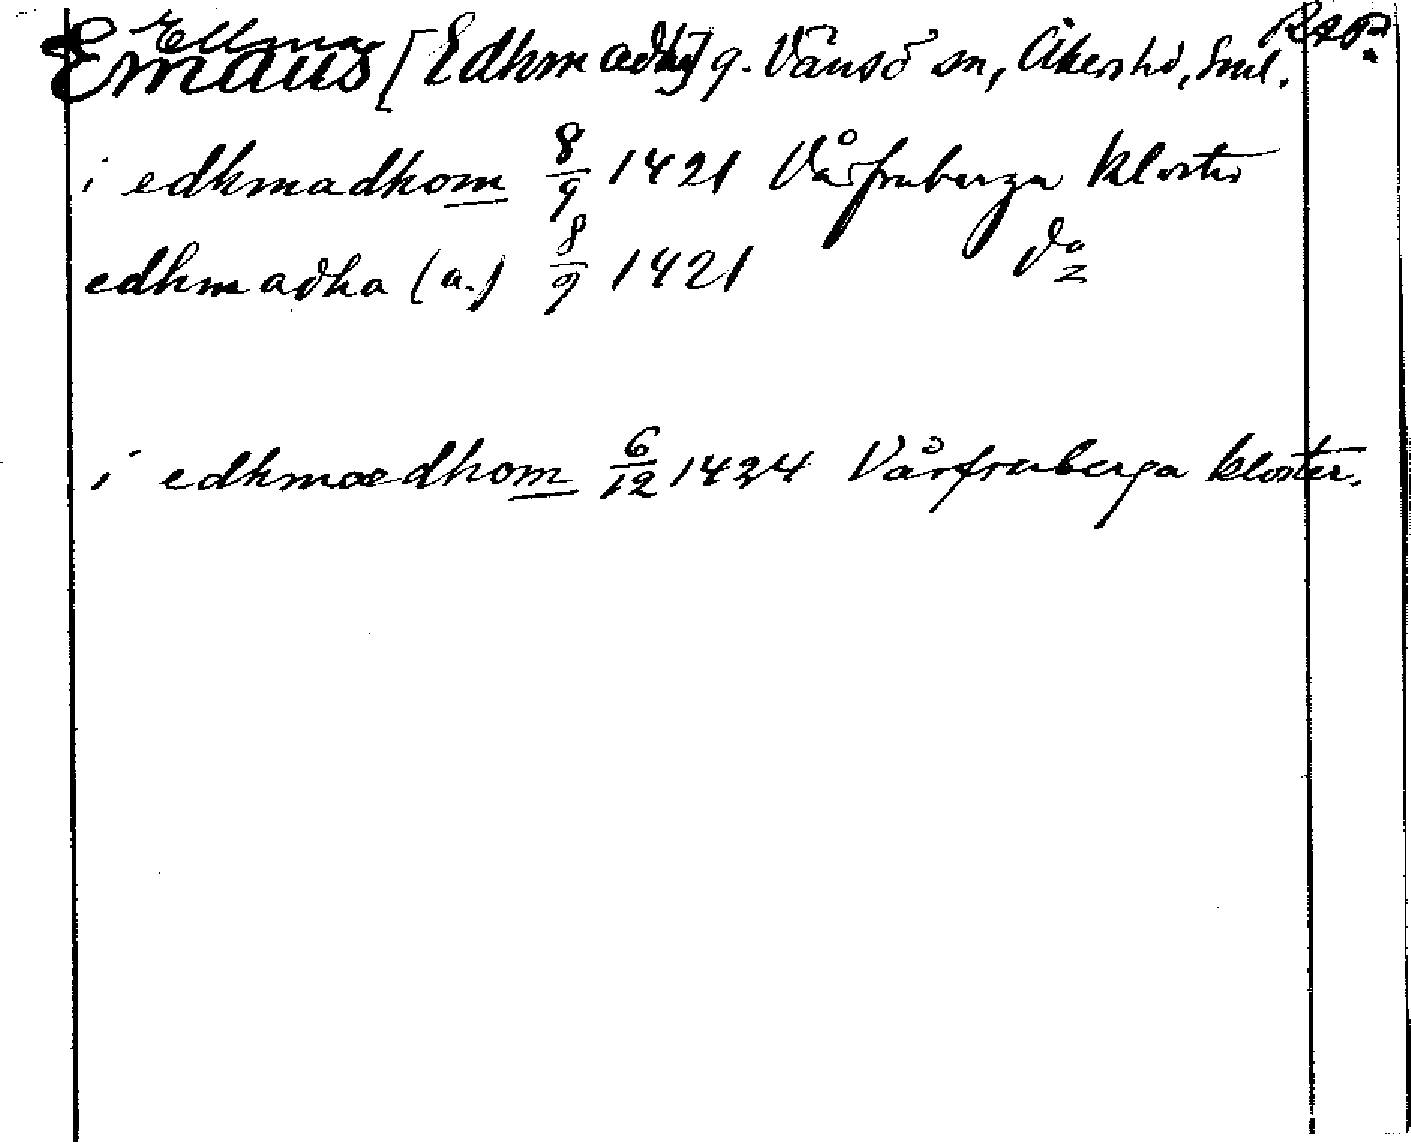 Emaus [Edhmædhi] g. Vånsö sn, Åkershd, Sml. RAP
i edhmadhom 8/9 1421 Vårfruberga kloster
edhmadha (a.) 8/9 1421 Do
i edhmædhom 6/12 1424 Vårfruberga kloster.